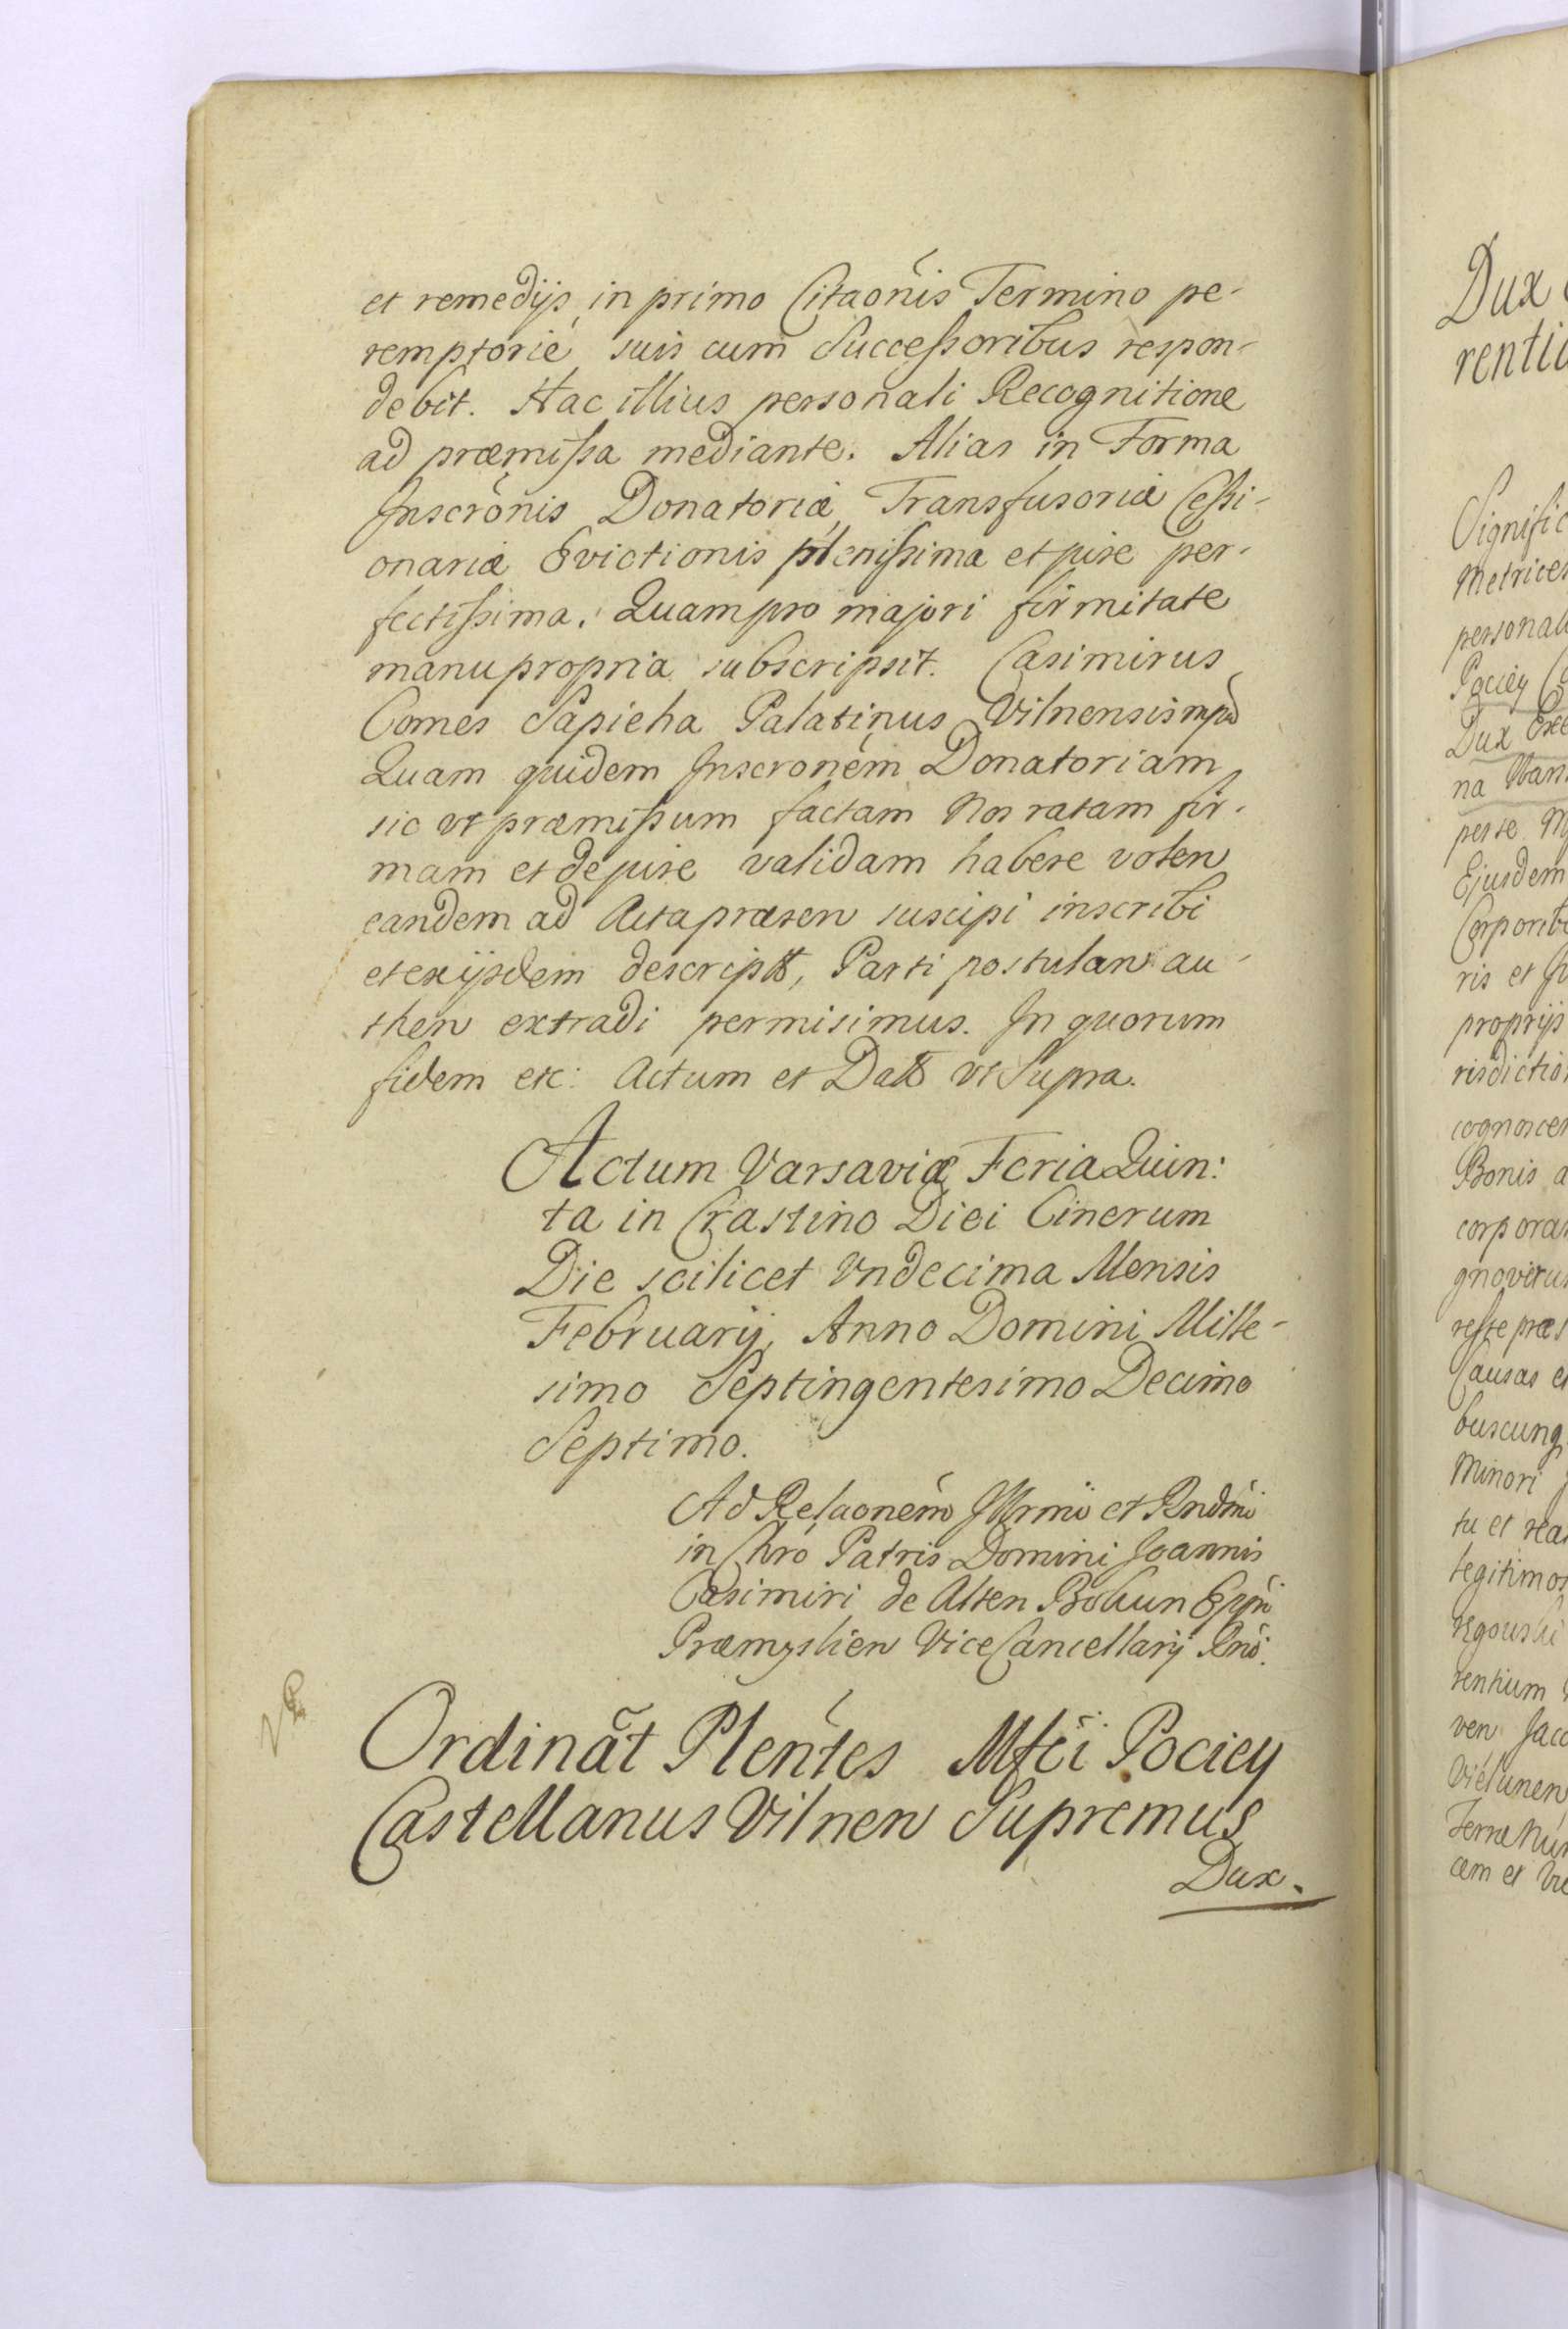 et remedijs, in primo Citaõnis Termino pe-
remptorie, suis cum Successoribus respon-
debit. Hac illius personali Recognitione
ad præmissa mediante. Alias in Forma
Inscrõnis Donatoriæ, Transfusoriæ Cessi-
onariæ Evictionis plenissima et jure per-
fectissima. Quam pro majori firmitate
manu propria subscripsit. Casimirus
Comes Sapieha Palatinus Vilnensis mpa
Quam quidem Inscronem Donatoriam
sic vt præmissum factam Nos ratam fir-
mam et de jure validam habere volen
eandem ad Acta præsen suscipi inscribi
et ex ijsdem descript, Parti postulan au-
then extradi permisimus. In quorum
fidem etc: Actum et Datt vt Supra.
Actum Varsaviæ Feria Quin:
ta in Crastino Diei Cinerum
Die scilicet Vndecima Mensis
Februarij, Anno Domini Mille-
simo Septingentesimo Decimo
Septimo.
Ad Relaonem Illrmi et Rndmi
in Chro Patris Domini Joannis
Casimiri de Alten Bokun Eppi
Præmyslien Vice Cancellarij Rni.
Ordinãt Plentes Mfci Pociey
Castellanus Vilnen Supremus
Dux.
Dux
renti
Signific
Metrices
personali
Pociey
Dux Exe
na
perse
Ejusdem
Corporib
ris et
proprijs
risdictio
cognoscen
Bonis a
corpora
gnovit
præs
Causas et
buscunq
Minori
tu et rea
legitimos
rentium
ven Jaco
Vielunen
Terræ
cem et